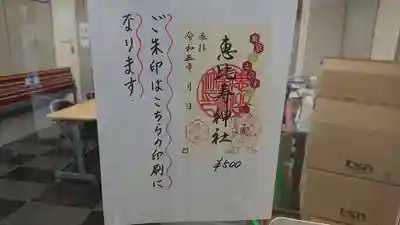 ご朱印はこちらの印刷に
なります.
奉拝
恵比寿神社
令和五年 月 日
¥500